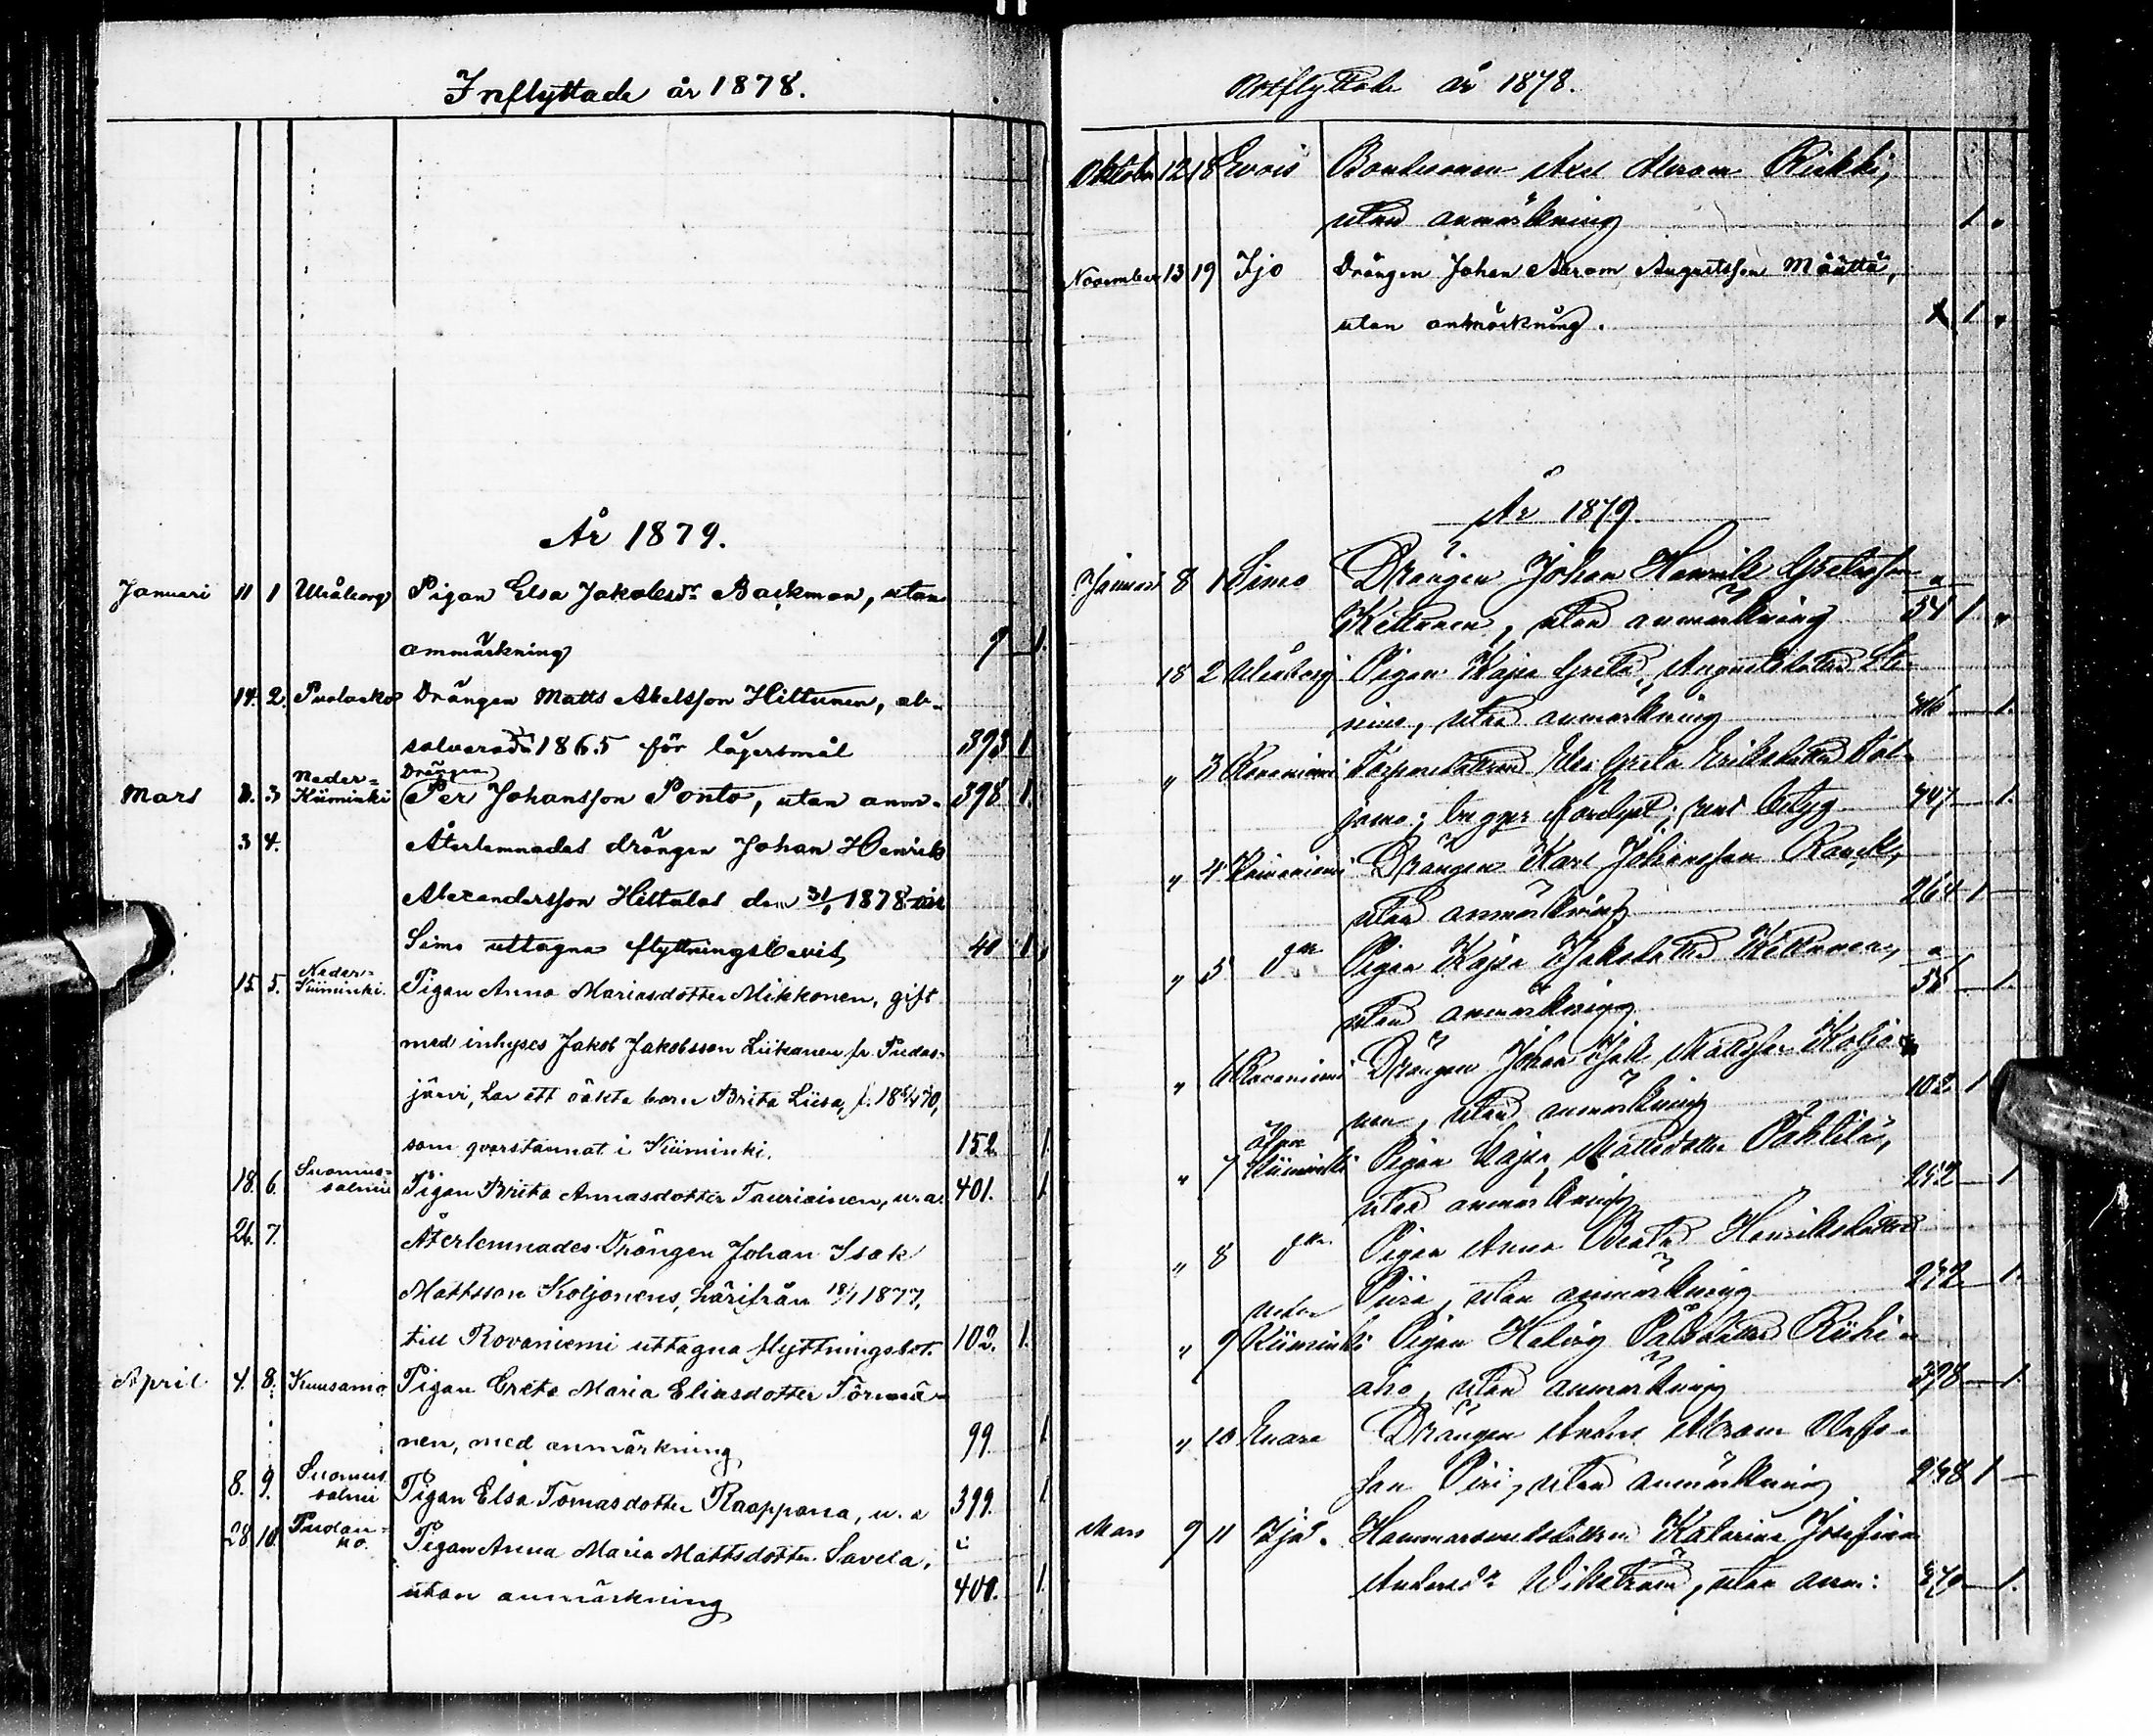 Inflyttade år 1878.
År 1879.
Januari 11 1 Uleåborg Pigan Elsa Jakobsdr Backman, utan
anmärkning 9 1.
14. 2. Pudasko Drängen Matts Abelsson Hiltunen, ab-
solverad 1865 för lägersmål 393 1
Neder- Drängen
Mars 3. 3 Kiiminki Per Johansson Ponto, utan anm. 398 1.
3 4. Återlemnades drängen Johan Henrik
Alexandersson Hiltulas den 31/1 1878
Simo uttagna flyttningsbevis 40 1,
Neder-
15 5. Kiiminki. Pigan Anna Mariasdotter Mikkonen, gift
med inhyses Jakob Jakobsson Liikanen fr. Pudas-
järvi, har ett oäkta barn Brita Liisa,
som qvarstannat i Kiiminki. 152 1.
Suomus-
18. 6. salmi Pigan Brita Annasdotter Tauriainen, u. a. 401. 1.
26. 7. Återlemnades Drängen Johan Isak
Mattsson Koljonens, härifrån 18/1 1877,
till Rovaniemi uttagna flyttningsbet. 102. 1.
April 4. 8. Kuusamo Pigan Greta Maria Eliasdotter Törmä-
nen, med anmärkning 99 1
Suomus
8. 9. salmi Pigan Elsa Tomasdotter Raappana, u. a 399. 1
28 10. Pigan Anna Maria Mattsdotter Savela,
utan anmärkning 400. 1.
Utflyttade år 1878.
Oktober 12 18 Evois Bondesonen Abram Riekki,
utan anmärkning 1 "
November 13 19 Ijo Drängen Johan Abram Augustsson Määttä,
utan anmärkning. 1 "
År 1879.
Januari 8 1 Simo Drängen Johan Henrik Gretasson
Kettunen, utan anmärkning 54 1 "
18 2 Uleåborg Pigan Kajsa Greta Augustsdotter
utan anmärkning 1.
" 3 Rovaniemi Elsa Greta Eriksdotter Kol-
betyg 1.
" 4 Rovaniemi Drängen Karl Johansson
utan anmärkning 264 1 —
" 5 Pigan Kajsa Jakobsdotter Kettunen,
utan anmärkning 1.
" 6 Rovaniemi Drängen Johan Isak Mattsson Koljo-
nen, utan anmärkning 102 1
" 7 Kiiminki Pigan Kajsa Mattsdotter Pahkila,
utan anmärkning 1
" 8 Pigan Anna Beata Henriksdotter
utan anmärkning 1.
Neder
" 9 Kiiminki Pigan Hedvig Riihi-
aho, utan anmärkning 398 1.
" 10 Enare Drängen Anders Abram Olofs-
son Piri, utan anmärkning 1 —
Mars 9 11 Ijo. Katarina Josefina
Andersdr Wikström, utan anm: 1.